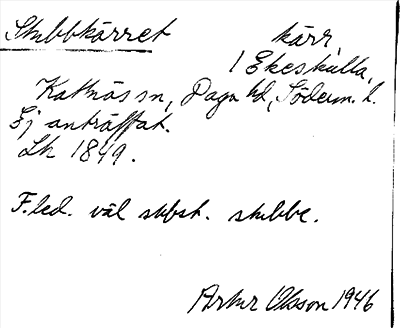 Stubbkärret kärr,
1 Ekeskulla,
Kattnäs sn, Daga hd, Söderm. l.
Ej anträffat.
Lk 1849.
F.led. väl subst. stubbe.
Artur Olsson 1946